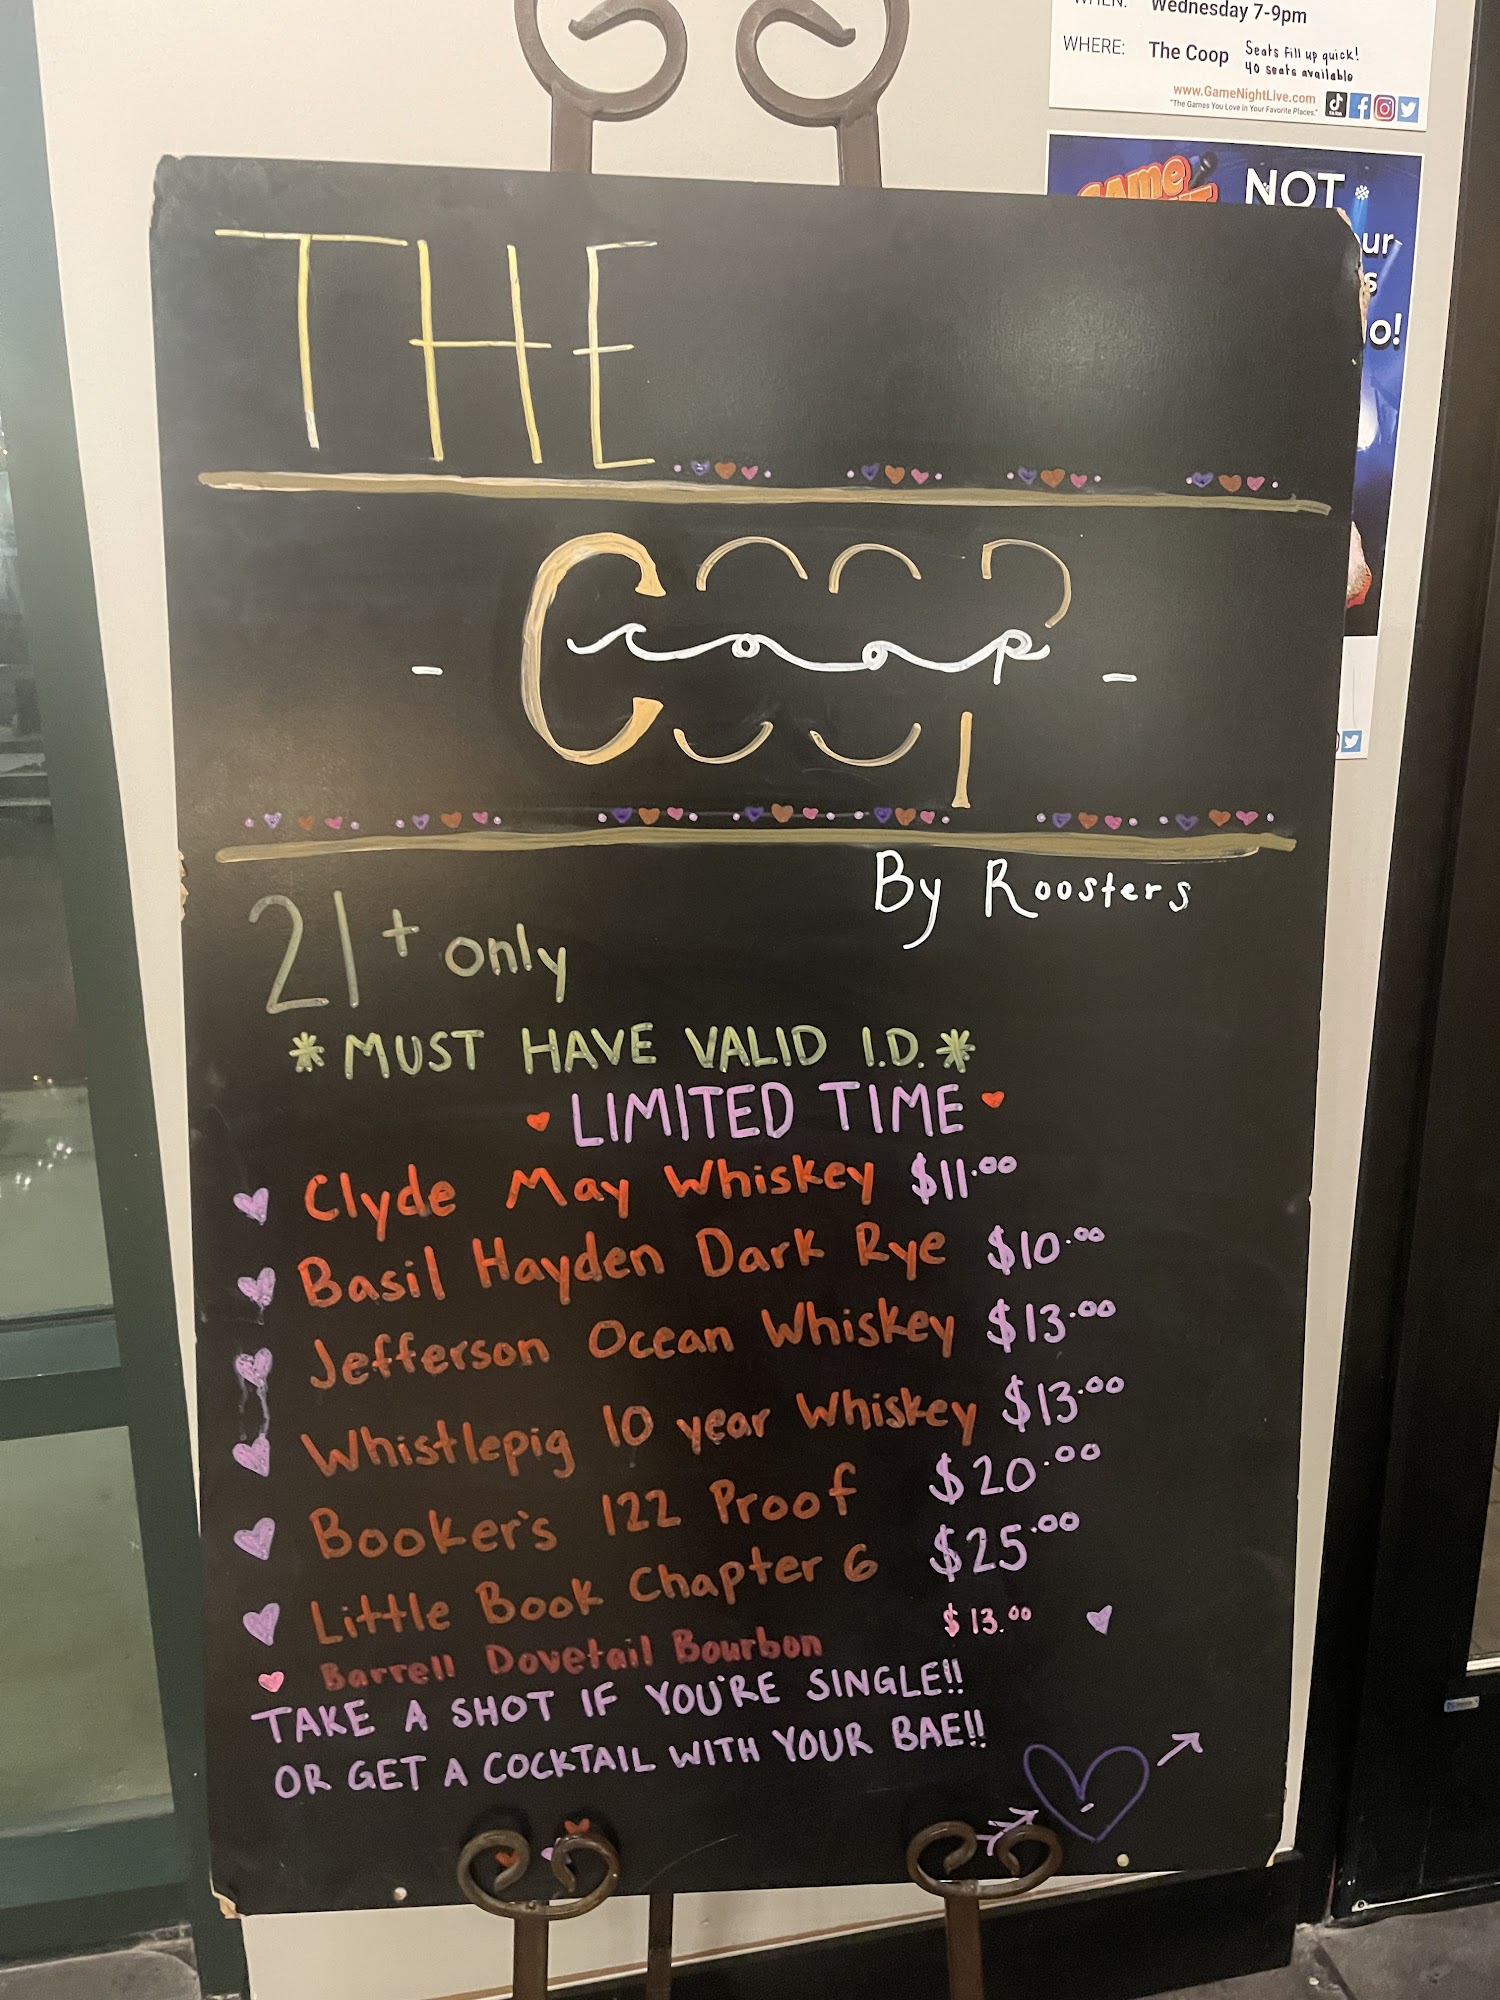 Wednesday 7-9pm
WHERE: The Coop Seats fill up quick!
40 seats available
www.GameNightLive.com
"The Games You Love in Your Favorite Places."
GAME
NOT
THE
COOP
- coop -
By Roosters
21+ only
*MUST HAVE VALID I.D.*
LIMITED TIME
Clyde May Whiskey $11.00
Basil Hayden Dark Rye $10.00
Jefferson Ocean Whiskey $13.00
Whistlepig 10 year Whiskey $13.00
Booker's 122 Proof $20.00
Little Book Chapter 6 $25.00
Barrell Dovetail Bourbon $13.00
TAKE A SHOT IF YOU'RE SINGLE!!
OR GET A COCKTAIL WITH YOUR BAE!!